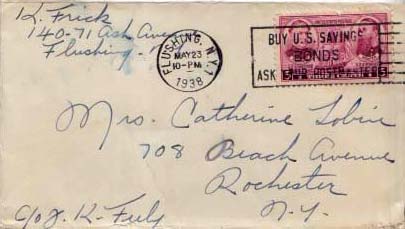 K. Frick
140-71 Ash Ave
Flushing
FLUSHING, N.Y. 1
MAY 23
10-PM
1938
BUY U.S. SAVINGS
BONDS
ASK
Mrs. Catherine
708 Beach Avenue
Rochester
N.Y.